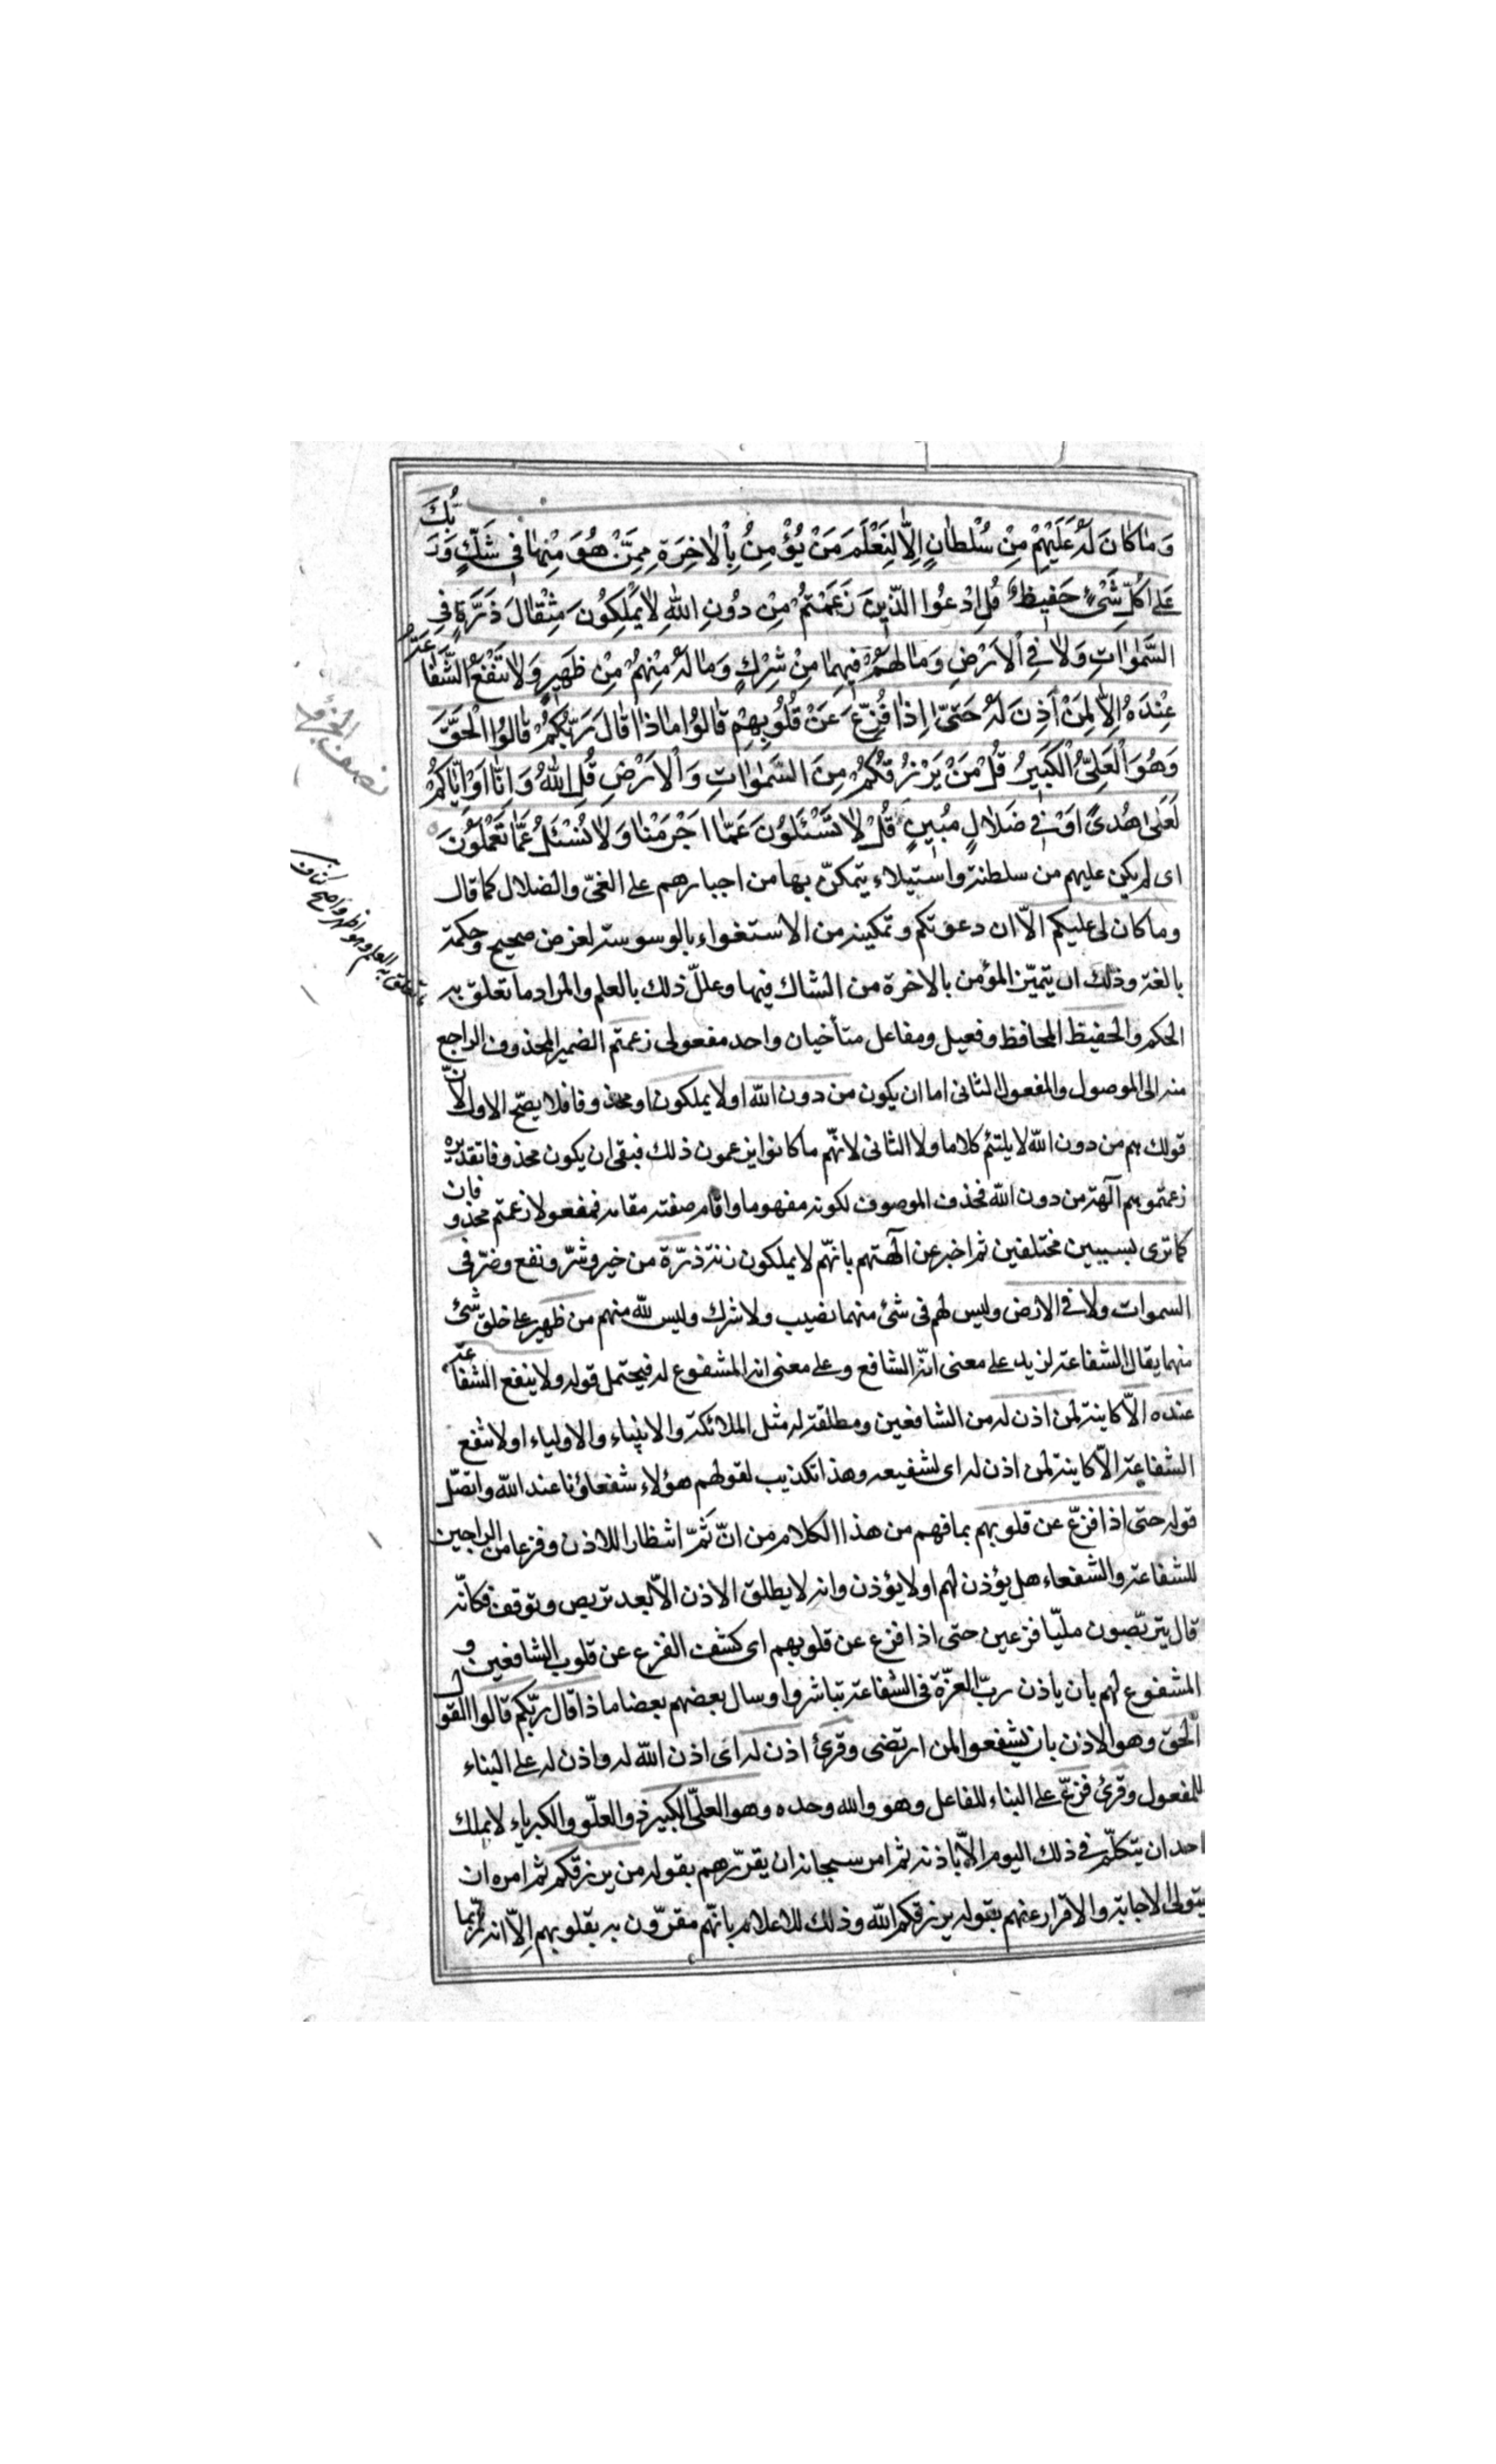 وَمَا كَانَ لَهُ عَلَيْهِمْ مِنْ سُلْطَانٍ اِلَّا لِنَعْلَمَ مَنْ يُؤْمِنُ بِالْاٰخِرَةِ مِمَّنْ هُوَ مِنْهَا فِى شَكٍّ وَرَبُّكَ
عَلٰى كُلِّ شَىْءٍ حَفِيظٌ قُلِ ادْعُوا الَّذِينَ زَعَمْتُمْ مِنْ دُونِ اللّٰهِ لَا يَمْلِكُونَ مِثْقَالَ ذَرَّةٍ فِى
السَّمٰوَاتِ وَلَا فِى الْاَرْضِ وَمَا لَهُمْ فِيهِمَا مِنْ شِرْكٍ وَمَا لَهُ مِنْهُمْ مِنْ ظَهِيرٍ وَلَا تَنْفَعُ الشَّفَاعَةُ
عِنْدَهُ اِلَّا لِمَنْ اَذِنَ لَهُ حَتّٰى اِذَا فُزِّعَ عَنْ قُلُوبِهِمْ قَالُوا مَاذَا قَالَ رَبُّكُمْ قَالُوا الْحَقَّ
وَهُوَ الْعَلِىُّ الْكَبِيرُ قُلْ مَنْ يَرْزُقُكُمْ مِنَ السَّمٰوَاتِ وَالْاَرْضِ قُلِ اللّٰهُ وَاِنَّا اَوْ اِيَّاكُمْ
لَعَلٰى هُدًى اَوْ فِى ضَلَالٍ مُبِينٍ قُلْ لَا تُسْئَلُونَ عَمَّا اَجْرَمْنَا وَلَا نُسْئَلُ عَمَّا تَعْمَلُونَ
اى لم يكن عليهم من سلطنة واستيلاء يتمكن بها من اجبارهم على الغىّ والضلال كما قال
وما كان لى عليكم الّا ان دعوتكم وتمكينه من الاستغواء بالوسوسة لغرض صحيح وحكمة
بالغة وذلك ان يتميّز المؤمن بالاخرة من الشاك فيها وعلّل ذلك بالعلم والمراد ما تعلق به
الحكم والحفيظ المحافظ وفعيل ومفاعل متأخيان واحد مفعولى زعمتم الضمير المحذوف الراجع
منه الى الموصول والمفعول الثانى اما ان يكون من دون الله او لا يملكون او محذوفا فلا يصحّ الاول لانّ
قولك هم من دون الله لا يلتئم كلاما ولا الثانى لانّهم ما كانوا يزعمون ذلك فبقى ان يكون محذوفا تقديره
زعمتموهم آلهة من دون الله فحذف الموصوف لكونه مفهوما واقام صفته مقامه فمفعولا زعمتم محذوفان
كما ترى بسببين مختلفين ثم اخبر عن آلهتهم بانّهم لا يملكون زنة ذرّة من خير وشرّ ونفع وضرّ فى
السموات ولا فى الارض وليس لهم فى شئ منهما نصيب ولا شرك وليس لله منهم من ظهير على خلق شئ
منهما يقال الشفاعة لزيد على معنى انّه الشافع وعلى معنى انه المشفوع له فيحتمل قوله ولا ينفع الشفاعة
عنده الّا كاينة لمن اذن له من الشافعين ومطلقة له مثل الملائكة والانبياء والاولياء او لا تنفع
الشفاعة الّا كاينة لمن اذن له اى لشفيعه وهذا تكذيب لقولهم هؤلاء شفعاؤنا عند الله واتصّل
قوله حتى اذا فزّع عن قلوبهم بما فهم من هذا الكلام من انّ ثَمّ انتظارا للاذن وفزعا من الراجين
للشفاعة والشفعاء هل يؤذن لهم او لا يؤذن وانه لا يطلق الاذن الّا بعد تربص وتوقف فكانّه
قال يتربّصون مليّا فزعين حتى اذا فزع عن قلوبهم اى كشف الفزع عن قلوب الشافعين و
المشفوع لهم بان ياذن ربّ العزّة فى الشفاعة تباشروا وسال بعضهم بعضا ماذا قال ربّكم قالوا القول
الحق وهو الاذن بان يشفعوا لمن ارتضى وقرئ اذن له اى اذن الله له واذن له على البناء
للمفعول وقرئ فزّع على البناء للفاعل وهو والله وحده وهو العلىّ الكبير ذو العلّو والكبرياء لا يملك
احد ان يتكلّم فى ذلك اليوم الّا باذنه ثم امر سبحانه ان يقرّرهم بقوله من يرزقكم ثم امره ان
يتولى الاجابة والاقرار عنهم بقوله يرزقكم الله وذلك للاعلام بانّهم مقرّون به بقلوبهم اِلّا انه ربّما
نصف الجزؤ
ما تعلق به العلم وهو اظهر واصح